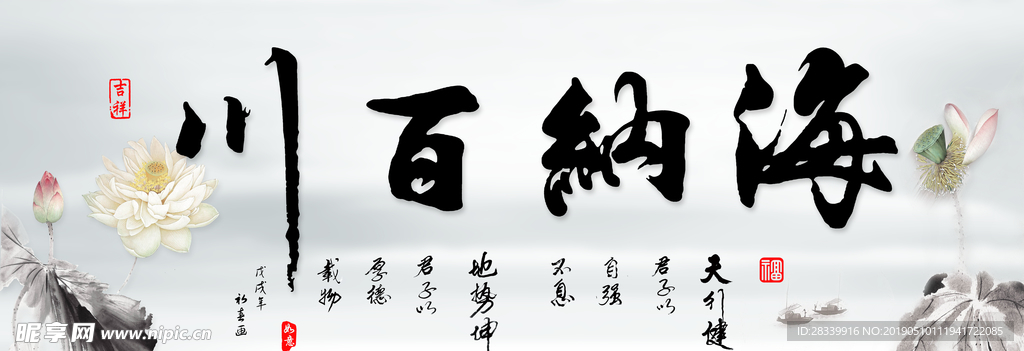 海纳百川
天行健
君子以
自强
不息
地势坤
君子以
厚德
载物
戊戌年
福
吉祥
如意
昵享网 www.nipic.cn
ID:28339916 NO:20190510111941722085